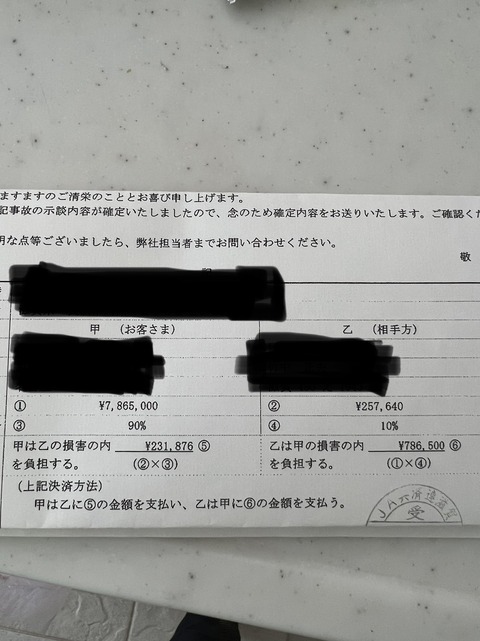 ますますのご清栄のこととお喜び申し上げます。
記事故の示談内容が確定いたしましたので、念のため確定内容をお送りいたします。ご確認くだ
明な点等ございましたら、弊社担当者までお問い合わせください。
敬
甲 (お客さま) 乙 (相手方)
① ¥7,865,000 ② ¥257,640
③ 90% ④ 10%
甲は乙の損害の内 ¥231,876 ⑤ 乙は甲の損害の内 ¥786,500 ⑥
を負担する。 (②×③) を負担する。 (①×④)
(上記決済方法)
甲は乙に⑤の金額を支払い、乙は甲に⑥の金額を支払う。
JA共済
受